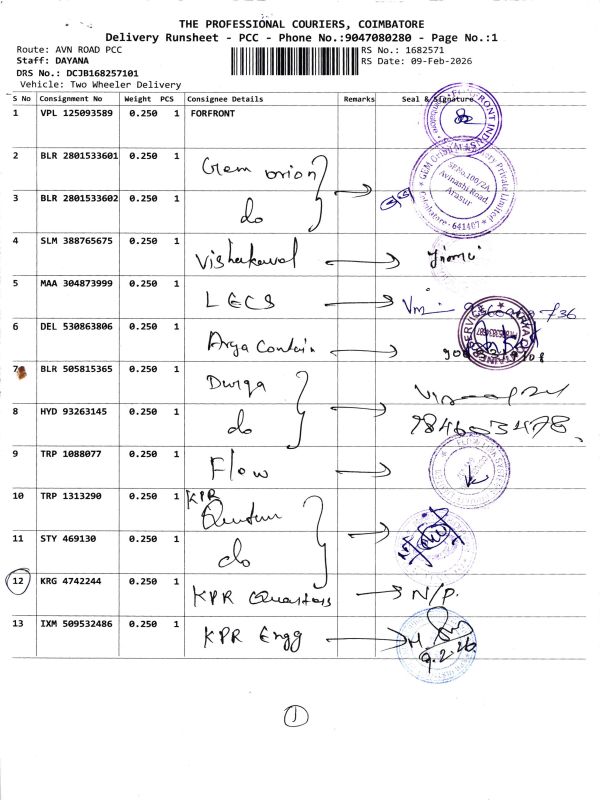 THE PROFESSIONAL COURIERS, COIMBATORE
Delivery Runsheet - PCC - Phone No.:9047080280 - Page No.:1
Route: AVN ROAD PCC
RS No.: 1682571
Staff: DAYANA
RS Date: 09-Feb-2026
DRS No.: DCJB168257101
Vehicle: Two Wheeler Delivery
S No Consignment No Weight PCS Consignee Details Remarks Seal & Signature
1 VPL 125093589 0.250 1 FORFRONT
2 BLR 2801533601 0.250 1 Gem orion
3 BLR 2801533602 0.250 1 do
GEM
SF.No.100/2A
Avinashi Road,
Arasur
641407
4 SLM 388765675 0.250 1
5 MAA 304873999 0.250 1 LECS
6 DEL 530863806 0.250 1 Arya Contain
7 BLR 505815365 0.250 1 Durga
8 HYD 93263145 0.250 1 do
9 TRP 1088077 0.250 1 Flow
10 TRP 1313290 0.250 1 KPR
11 STY 469130 0.250 1 do
12 KRG 4742244 0.250 1 KPR N/P.
13 IXM 509532486 0.250 1 KPR Engg
9.2.26
1